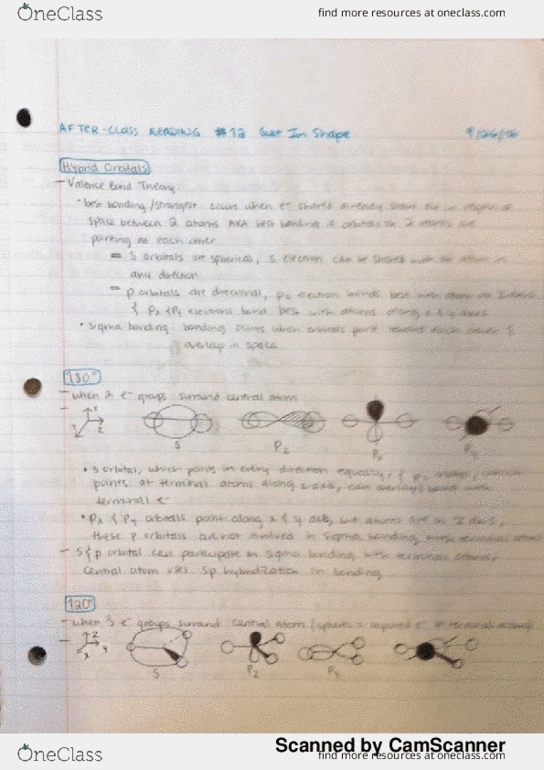 OneClass
find more resources at oneclass.com
AFTER-CLASS READING #12 Get In Shape
Hybrid Orbitals
- Valence Bond Theory:
• best bonding/strongest occurs when e- shared
space between 2 atoms AKA best bonding if orbitals on 2 atoms are
pointing at each other
= S orbitals are spherical, s electron can be shared with an atom in
any direction
= p orbitals are directional, pz electron bonds best with atoms on
& Px & Py electrons bond best with atoms along x & y axes
• sigma bonding: bonding occurs when orbitals point toward each other &
overlap in space
180°
- when 2 e- groups surround central atom
x
y
z
S
Pz
Px
Py
• s orbital, which points in every direction equally, & pz orbital, which
points at terminal atoms along z axis, can overlap/bond with
terminal e-
• Px & Py orbitals point along x & y axis, but atoms are on z axis,
these p orbitals are not involved in sigma bonding with terminal atoms
- S & p orbital can participate in sigma bonding with terminal atoms,
central atom uses sp hybridization in bonding
120°
- when 3 e- groups surround central atom (spheres = unpaired e- of terminal atoms
z
y
x
S
Pz
Py
OneClass
Scanned by CamScanner
find more resources at oneclass.com